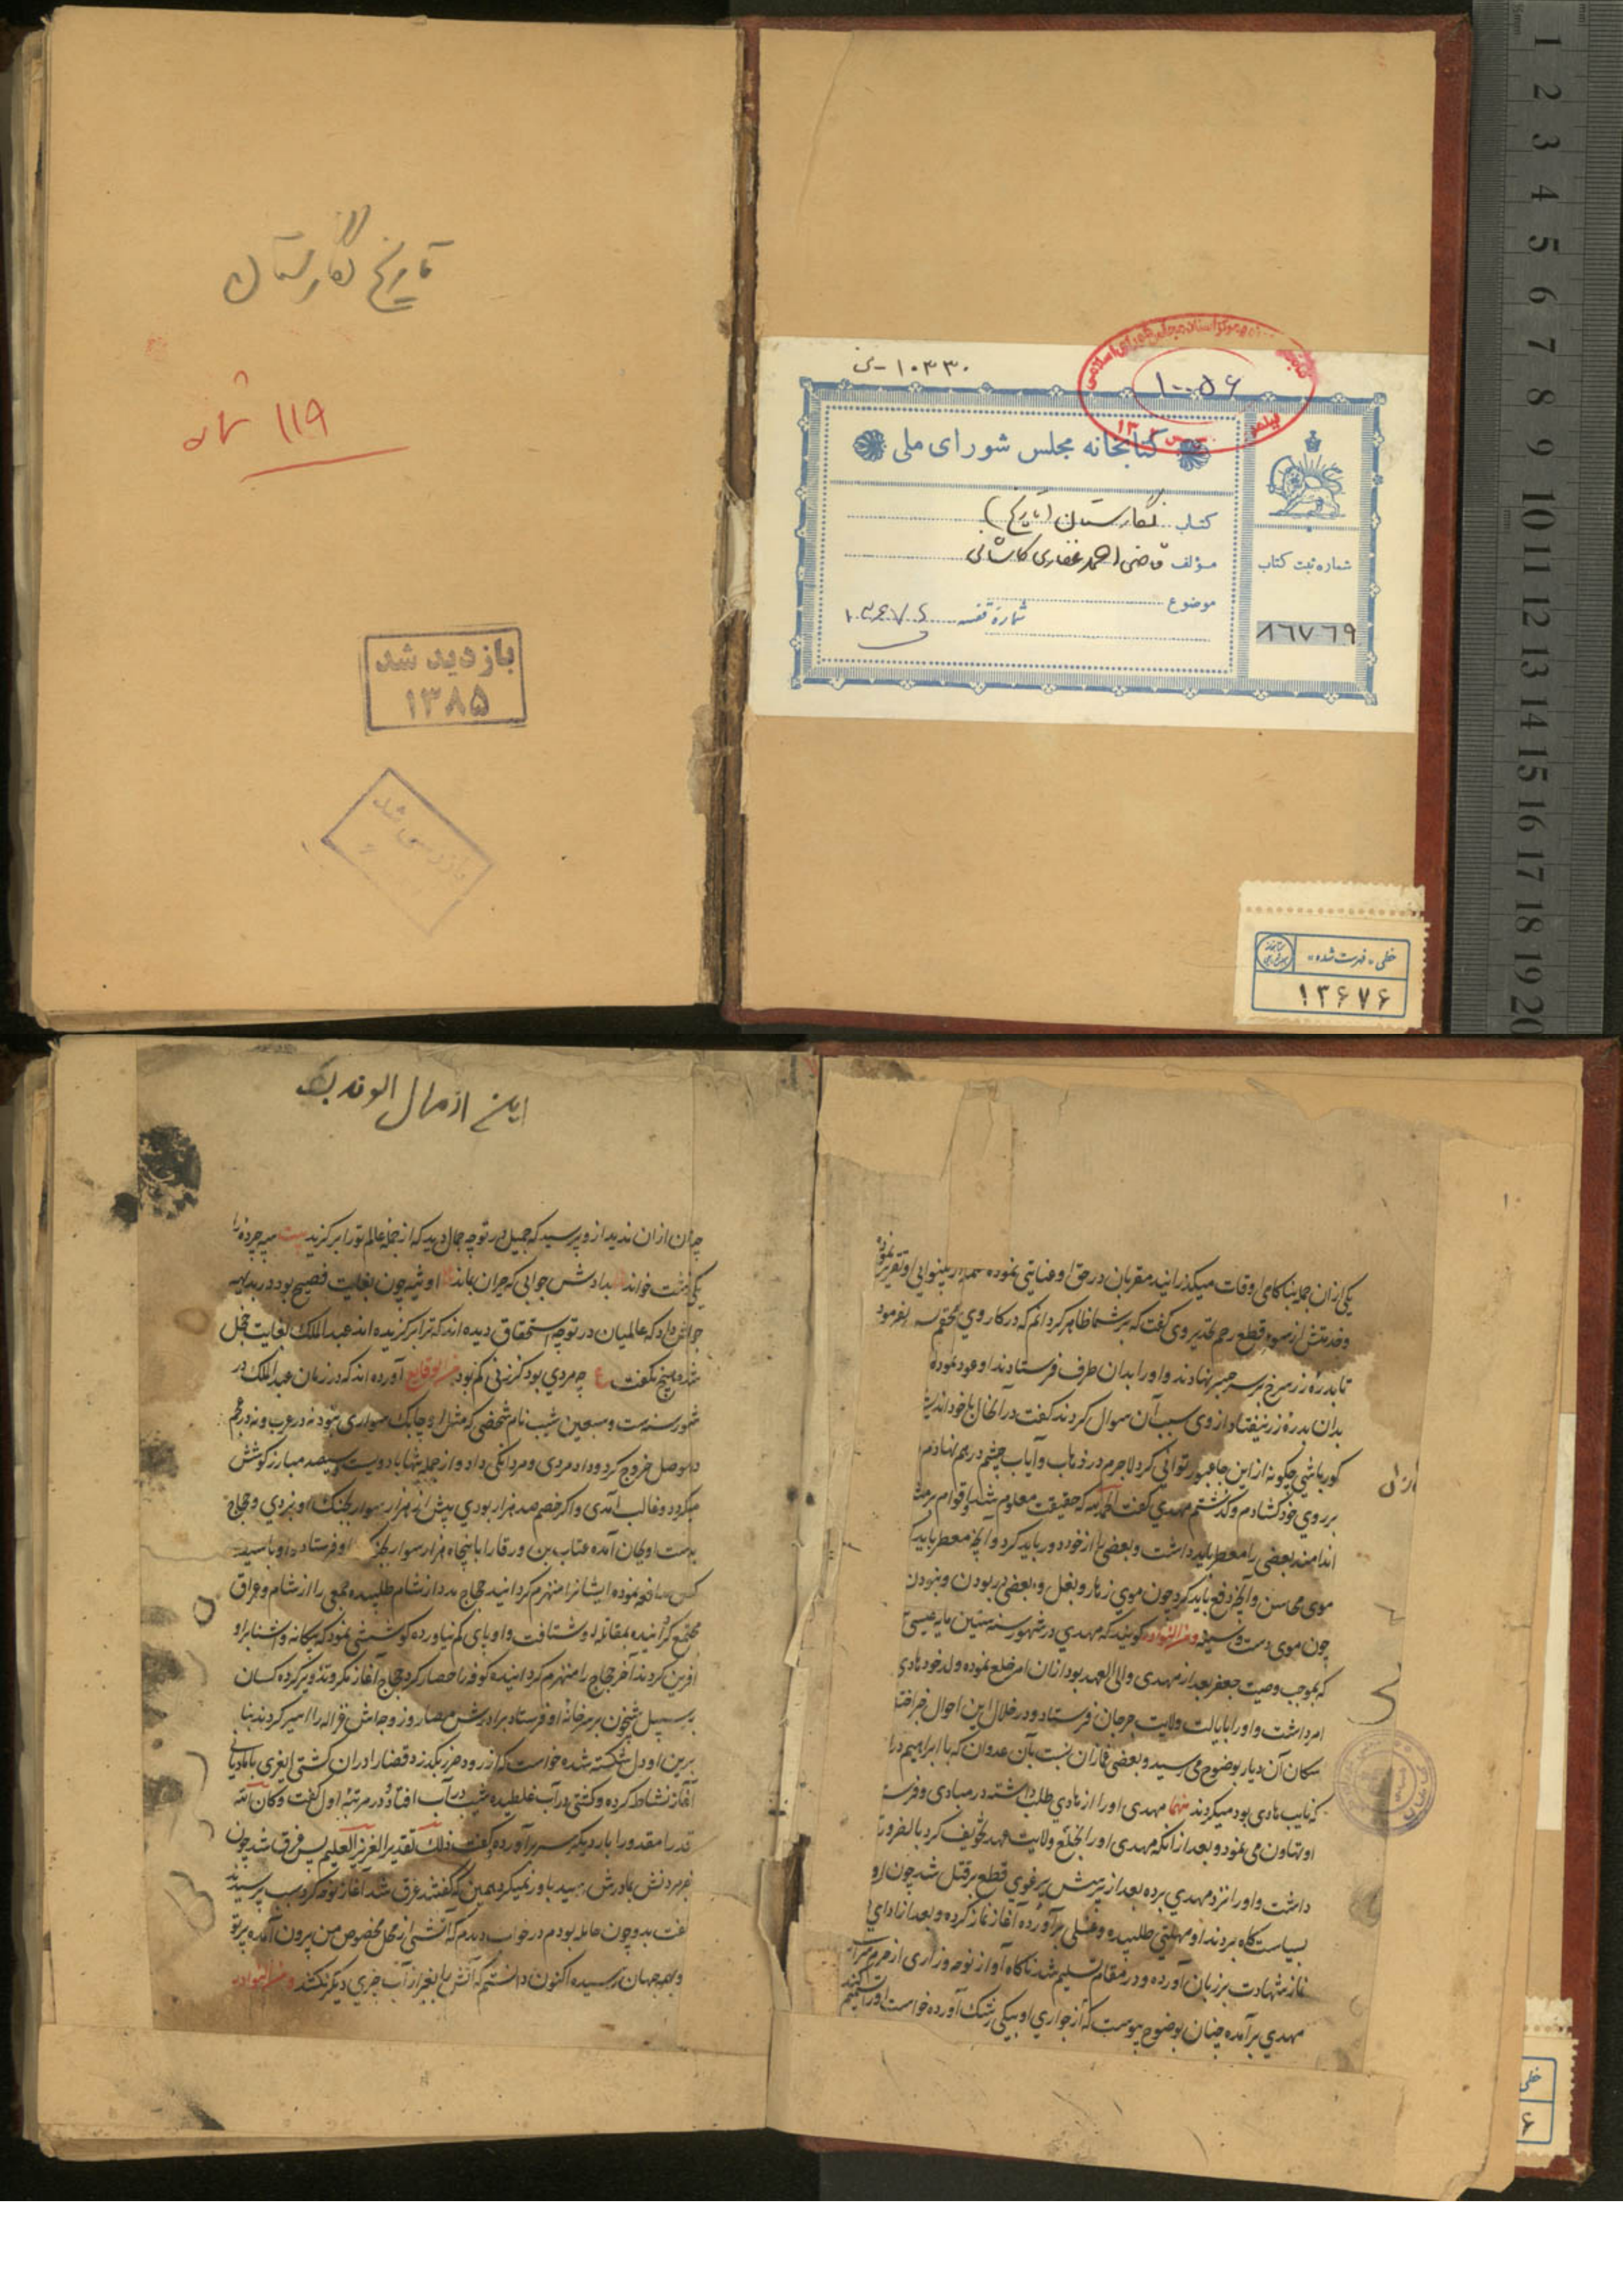 ۱۰۳۳۰-ن
۱۰۰۵۶
کتابخانه مجلس شورای ملی
کتاب نگارستان (تاریخ)
مؤلف قاضی احمد غفاری کاشانی
موضوع
شماره قفسه ۱۳۶۷۶
شماره ثبت کتاب
۸۶۷۶۹
خطی - فهرست شده
۱۳۶۷۶
تاریخ نگارستان
۱۱۹
بازدید شد
۱۳۸۵
یکی از ان جمله بناکامی اوقات میگذرانید مقربان در حق او عنایتی نموده بینوایی او تقریر نموده
و خدمتش از سوء قطع رحم تحذیر وی گفت که بر شما ظاهر کردانم که در کار وی بفرمود
تا بدره زر سرخ بر سر جسر نهادند و او را بدان طرف فرستادند او عود نموده
بدان بدره زر نیفتاد از وی سبب آن سوال کردند گفت در آنحال با خود اندیشه
کور باشی چگونه از این جا عبور توانی کرد لاجرم در ذهاب و ایاب چشم در هم نهادم
بر روی خود کشادم و گذشتم مهدی گفت الحمد لله که حقیقت معلوم شد
اندامند بعضی را معطر باید داشت و بعضی را از خود دور باید کرد و آنچه معطر باید
موی محاسن و آنچه دفع باید کرد چون موی زهار و بغل و بعضی در بودن و نبودن
چون موی دست و سینه و من النوادر کویند که مهدی در شهور سنه ستین مایه عیسی
که بموجب وصیت جعفر بعد از مهدی والی العهد بود از ان امر خلع نموده ولد خود هادی
امر داشت و او را بایالت ولایت جرجان فرستاد و در خلال این احوال
سکان آن دیار بوضوح می رسید و بعضی غمازان نسبت بآن عدوان که با ابراهیم
که نایب هادی بود میکردند منها مهدی او را از هادی طلب داشته در مبادی
او تهاون می نمود و بعد از آنکه مهدی او را بخلع ولایت عهد تخویف کرد بالضرورة
داشت و او را نزد مهدی برده بعد از پرسش یرغوی قطع بر قتل شد چون او
بسیاست کاه بردند او مهلتی طلبیده و غسلی برآورده آغاز نماز کرده و بعد از ادای
نماز شهادت بر زبان آورده و در مقام تسلیم شد ناکاه آواز نوحه و زاری از حرم سرای
مهدی برآمده چنان بوضوح پیوست که از جواری او بیکی رشک آورده خواست او را
این از مال الوند بیک
چنان از ان ندید از و پرسید که جمیل در تو چه جمال دید که از جمله عالم تو را برگزید بیت سیه چرده را
یکی زشت خواند بدادش جوابی که حیران بماند او ثینه چون بغایت فصیح بود در بدایه
جوابش داد که عالمیان در تو چه استحقاق دیده اند که ترا برگزیده اند عبد الملک بغایت خجل
شد و هیچ نگفت ع چه مردی بود کز زنی کم بود من الوقایع آورده اند که در زمان عبد الملک در
شهور سنه ست و سبعین شبیب نام شخصی که مثل او چابک سواری نبود نه در عرب و نه در عجم
در موصل خروج کرد و داد مردی و مردانکی داد و از جمله شبها با دویست و سیصد مبارز کوشش
میکرد و غالب آمدی و اگر خصم صد هزار بودی بیش از هزار سوار بجنک او نبردی و حجاج
بدست او بجان آمده عتاب بن ورقا را با پنجاه هزار سوار بجنک او فرستاد و او با سیصد
کس مدافعه نموده ایشانرا منهزم کردانید حجاج مدد از شام طلبیده جمعی را از شام و عراق
مجتمع کردانیده بمقاتله او شتافت و او پای کم نیاورده کوششی نمود که بیکانه و اشنا برو
آفرین کردند آخر حجاج را منهزم کردانیده کوفه را حصار کرد حجاج آغاز مکر و تذویر کرده کسان
برسبیل شبیخون بر سر خانه او فرستاد برادرش مصاد و زوجه اش غزاله را اسیر کردند بنا
برین او دل شکسته شده خواست که از رود خزر بگذرد قضا را در ان کشتی ایغری با مادیانی
آغاز نشاط کرده و کشتی در آب غلطیده شبیب در آب افتاد و در مرتبه اول گفت و کان امر الله
قدرا مقدورا بار دیگر سر برآورده گفت ذلک تقدیر العزیز العلیم پس غرق شد چون
خبر مردنش بمادرش رسید باور نمیکرد همین که گفتند غرق شد آغاز نوحه کرد سبب پرسیدند
گفت بدو چون حامله بودم در خواب دیدم که آتشی از محل مخصوص من بیرون آمده پرتو
و بهمه جهان رسیده اکنون دانستم که آتش را بغیر از آب چیزی دیگر نکشد و من النوادر